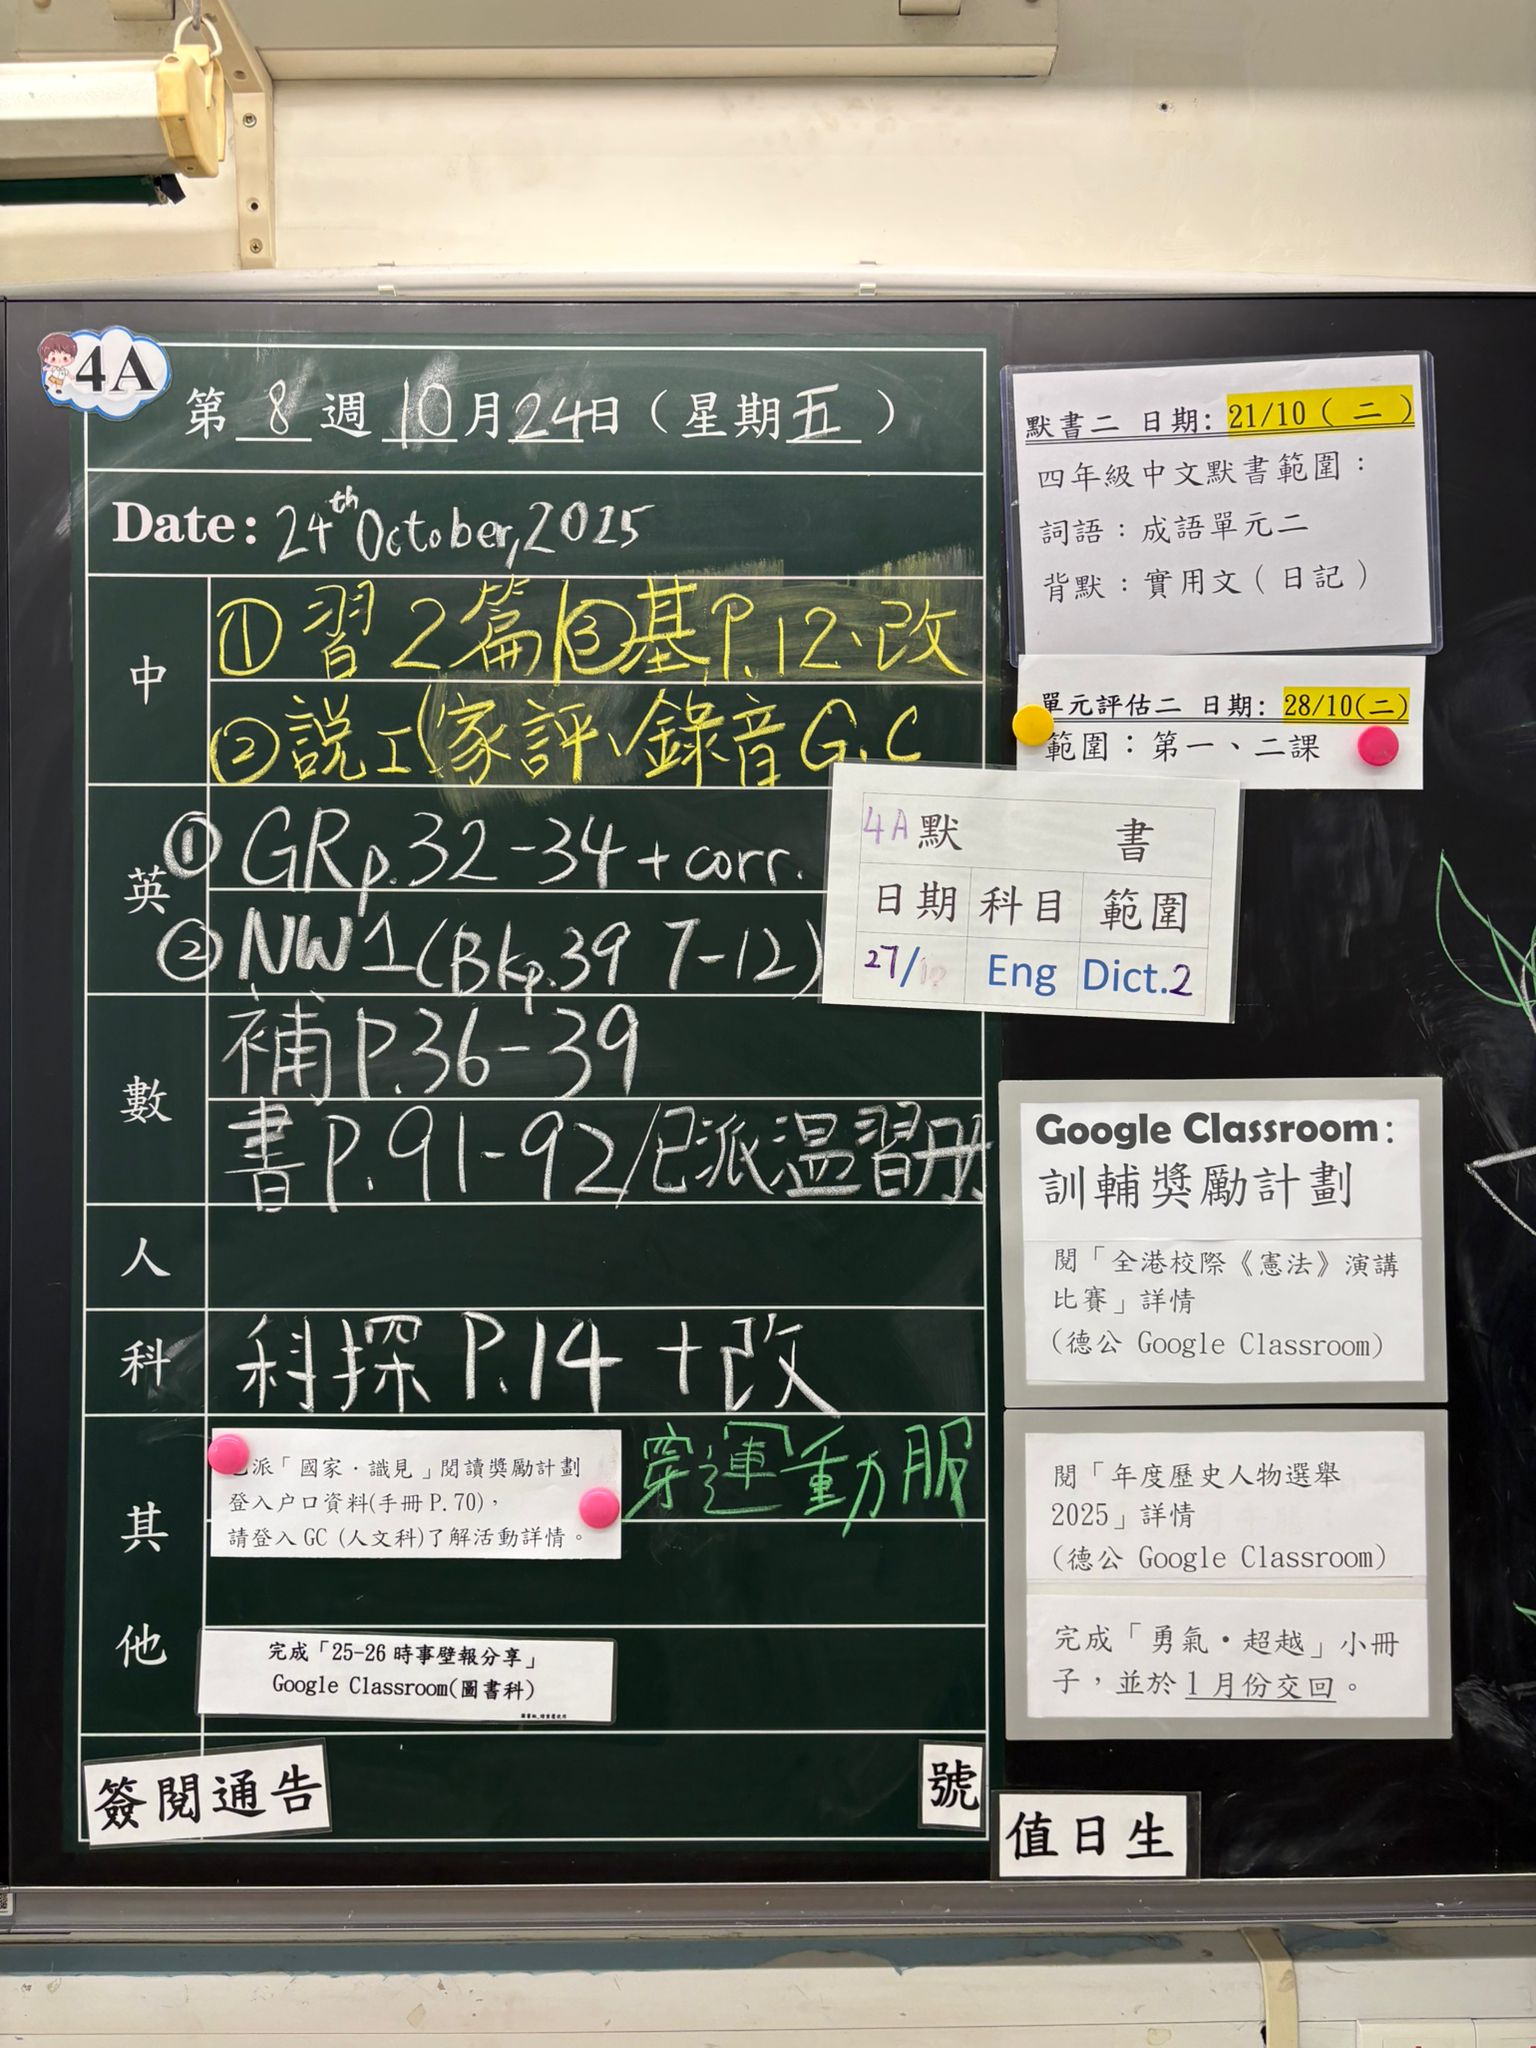 4A
第 8 週 10 月 24 日（星期五）
Date: 24th October, 2025
中
① 習 2 篇 ③ 基 P.12、改
② 說工(家評、錄音 G.C
英
① GR p.32-34 + corr.
② NW1 (Bk p.39 7-12)
數
補 P.36-39
書 P.91-92/已派温習册
人
科
科探 P.14 +改
其他
已派「國家・識見」閱讀獎勵計劃
登入户口資料(手冊 P.70)，
請登入 GC (人文科)了解活動詳情。
穿運動服
完成「25-26 時事壁報分享」
Google Classroom(圖書科)
簽閱通告
號
值日生
默書二 日期: 21/10（二）
四年級中文默書範圍：
詞語：成語單元二
背默：實用文（日記）
單元評估二 日期: 28/10(二)
範圍：第一、二課
4A 默 書
日期 科目 範圍
27/10 Eng Dict.2
Google Classroom:
訓輔獎勵計劃
閱「全港校際《憲法》演講
比賽」詳情
(德公 Google Classroom)
閱「年度歷史人物選舉
2025」詳情
(德公 Google Classroom)
完成「勇氣・超越」小冊
子，並於 1 月份交回。